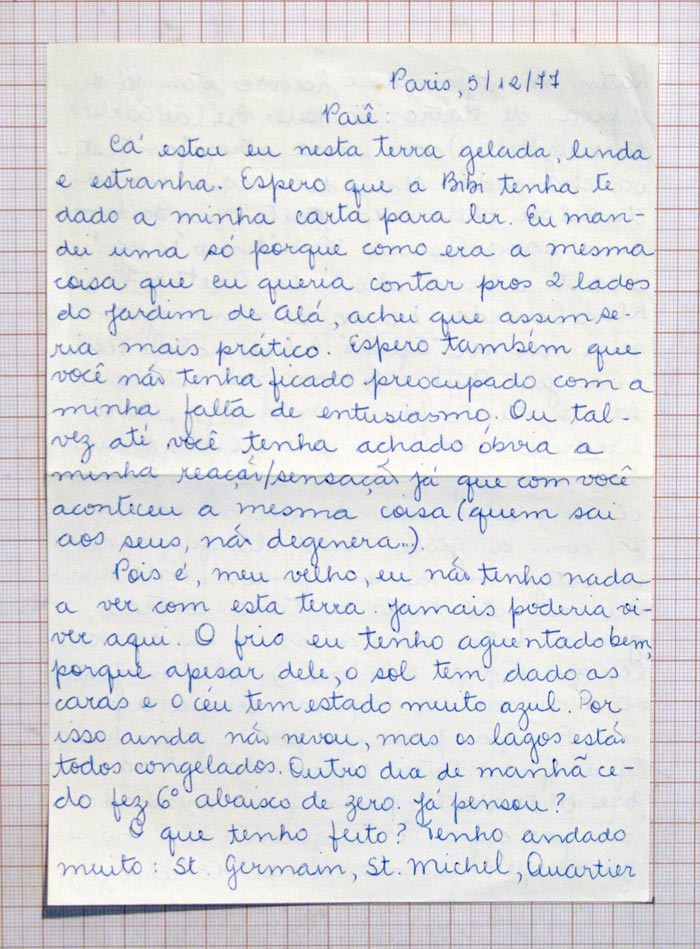 Paris, 5/12/77
Paiê
Cá estou eu nesta terra gelada, linda
e estranha. Espero que a Bibi tenha te
dado a minha carta para ler. Eu man-
dei uma só porque como era a mesma
coisa que eu queria contar pros 2 lados
do Jardim de Alá, achei que assim se-
ria mais prático. Espero também que
você não tenha ficado preocupado com a
minha falta de entusiasmo. Ou tal-
vez até você tenha achado óbvia a
minha reação/sensação já que com você
aconteceu a mesma coisa (quem sai
aos seus, não degenera...).
Pois é, meu velho, eu não tenho nada
a ver com esta terra. Jamais poderia vi-
ver aqui. O frio eu tenho aguentado bem,
porque apesar dele, o sol tem dado as
caras e o céu tem estado muito azul. Por
isso ainda não nevou, mas os lagos estão
todos congelados. Outro dia de manhã ce-
do fez 6° abaixo de zero. Já pensou?
O que tenho feito? Tenho andado
muito: St. Germain, St. Michel, Quartier